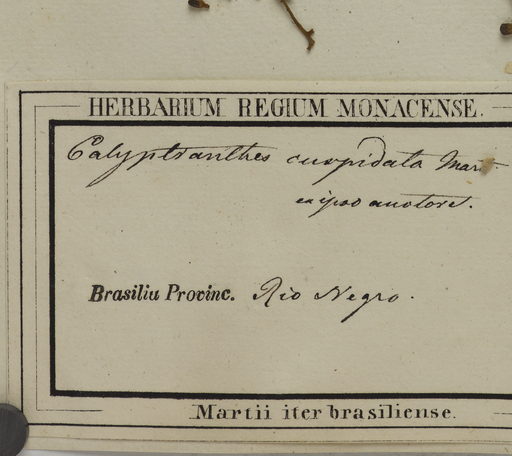 HERBARIUM REGIUM MONACENSE.
Calyptranthes cuspidata Mart.
ex ipso auctore.
Brasilia Provinc. Rio Negro.
Martii iter brasiliense.